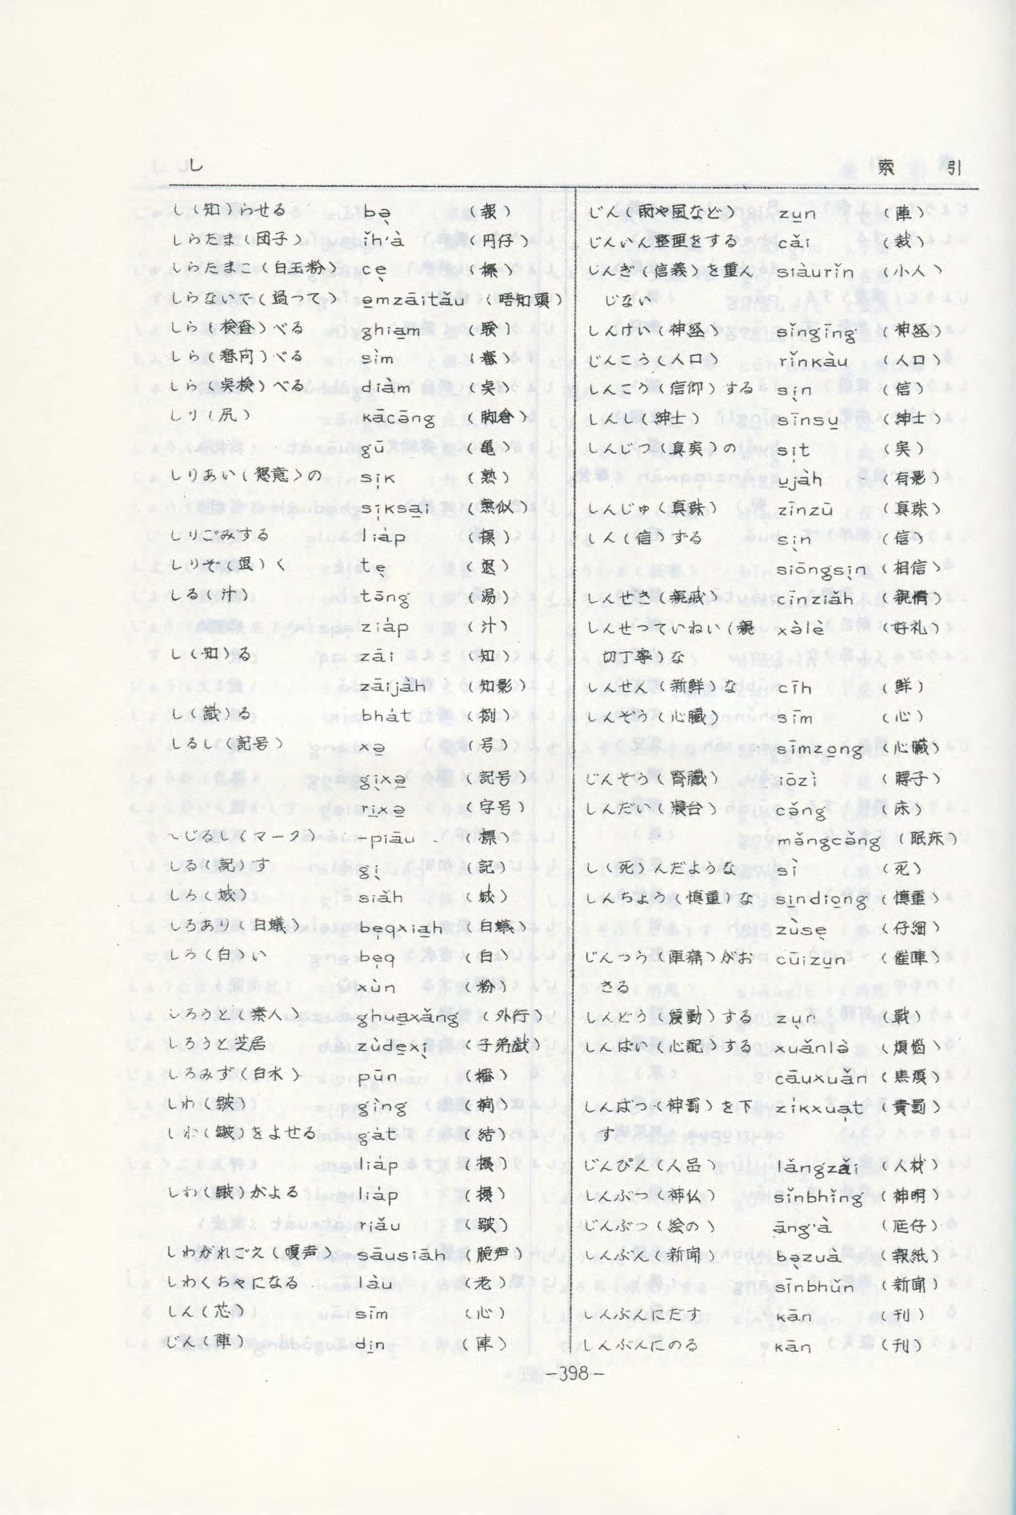 し 索引
し(知)らせる bə̣ (報)
しらたま(団子) ǐh'à (円仔)
しらたまこ(白玉粉) cẹ (粿)
しらないで(過って) e̱mzāitǎu (唔知頭)
しら(検査)べる ghia̱m (験)
しら(審問)べる sìm (審)
しら(臭検)べる diàm
しり(尻) kācēng
gū (亀)
しりあい(懇意)の si̍k (熟)
si̍ksa̱i (熟似)
しりごみする lia̍p (摄)
しりぞ(退)く tẹ (退)
しる(汁) tēng (湯)
zia̍p (汁)
し(知)る zāi (知)
zāijàh (知影)
し(識)る bha̍t (捌)
しるし(記号) xə̱ (号)
gịxə̱ (記号)
ri̱xə̱ (字号)
〜じるし(マーク) -piāu (標)
しる(記)す gị (記)
しろ(城) siǎh (城)
しろあり(白蟻) be̍qxia̱h (白蟻)
しろ(白)い be̍q (白)
xùn (粉)
しろうと(素人) ghua̱xǎng (外行)
しろうと芝居 zùde̱xị (子弟戯)
しろみず(白水) pūn (潘)
しわ(皺) gìng
しわ(皺)をよせる gat (結)
lia̍p (摄)
しわ(皺)がよる lia̍p (摄)
riǎu (皺)
しわがれごえ(嗄声) sāusiāh
しわくちゃになる làu (老)
しん(芯) sīm (心)
じん(陣) di̱n (陣)
じん(雨や風など) zu̱n (陣)
じんいん整理をする cǎi (裁)
じんぎ(信義)を重ん siàurǐn (小人)
じない
しんけい(神経) sǐngīng (神経)
じんこう(人口) rǐnkàu (人口)
しんこう(信仰)する sịn (信)
しんし(紳士) sīnsu̱ (紳士)
しんじつ(真実)の si̍t (実)
u̱jàh (有影)
しんじゅ(真珠) zīnzū (真珠)
しん(信)ずる sịn (信)
siōngsịn (相信)
しんせき(親戚) cīnziǎh (親情)
しんせつていねい(親 xàlè (好礼)
切丁寧)な
しんせん(新鮮)な cīh (鮮)
しんぞう(心臓) sīm (心)
sīmzo̱ng (心臓)
じんぞう(腎臓) iōzì (腰子)
しんだい(寝台) cěng (床)
mǎngcěng (眠床)
し(死)んだような sì (死)
しんちょう(慎重)な si̱ndio̱ng (慎重)
zùsẹ (仔細)
じんつう(陣痛)がお cūizu̱n (催陣)
さる
しんどう(震動)する zụn (戦)
しんぱい(心配)する xuǎnlə̀ (煩悩)
cāuxuǎn
しんばつ(神罰)を下 zikxua̍t (責罰)
す
じんぴん(人品) lǎngzǎi (人材)
しんぶつ(神仏) sǐnbhǐng (神明)
じんぶつ(絵の) āng'à (尪仔)
しんぶん(新聞) bə̣zuà (報紙)
sīnbhǔn (新聞)
しんぶんにだす kān (刊)
しんぶんにのる kān (刊)
-398-